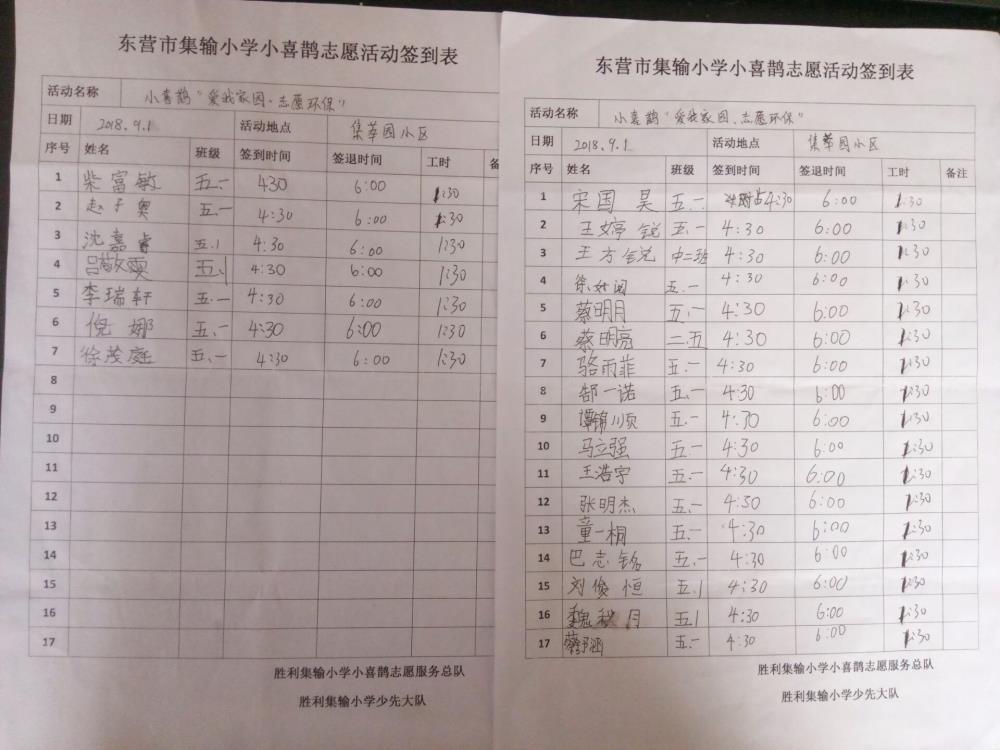 东营市集输小学小喜鹊志愿活动签到表
活动名称 小喜鹊“爱我家园、志愿环保”
日期 2018.9.1 活动地点 集萃园小区
序号 姓名 班级 签到时间 签退时间 工时 备
1 柴富敏 五.一 430 6:00 1:30
2 赵子奥 五.一 4:30 6:00 1:30
3 沈嘉睿 五.1 4:30 6:00 1:30
4 吕敬雯 五.1 4:30 6:00 1:30
5 李瑞轩 五.一 4:30 6:00 1:30
6 倪娜 五.一 4:30 6:00 1:30
7 徐茂庭 五.一 4:30 6:00 1:30
8
9
10
11
12
13
14
15
16
17
胜利集输小学小喜鹊志愿服务总队
胜利集输小学少先大队
东营市集输小学小喜鹊志愿活动签到表
活动名称 小喜鹊“爱我家园、志愿环保”
日期 2018.9.1 活动地点 集萃园小区
序号 姓名 班级 签到时间 签退时间 工时 备注
1 宋国昊 五.一 4:30 6:00 1:30
2 王婷锐 五.一 4:30 6:00 1:30
3 王方锐 中二班 4:30 6:00 1:30
4 徐 五.一 4:30 6:00 1:30
5 蔡明月 五.一 4:30 6:00 1:30
6 蔡明亮 二.五 4:30 6:00 1:30
7 骆雨菲 五.一 4:30 6:00 1:30
8 郜一诺 五.一 4:30 6:00 1:30
9 谭锦顺 五.一 4:30 6:00 1:30
10 马立强 五.一 4:30 6:00 1:30
11 王浩宇 五.一 4:30 6:00 1:30
12 张明杰 五.一 4:30 6:00 1:30
13 童一桐 五.一 4:30 6:00 1:30
14 巴志铭 五.一 4:30 6:00 1:30
15 刘俊恒 五.1 4:30 6:00 1:30
16 魏秋月 五1 4:30 6:00 1:30
17 五.一 4:30 6:00 1:30
胜利集输小学小喜鹊志愿服务总队
胜利集输小学少先大队